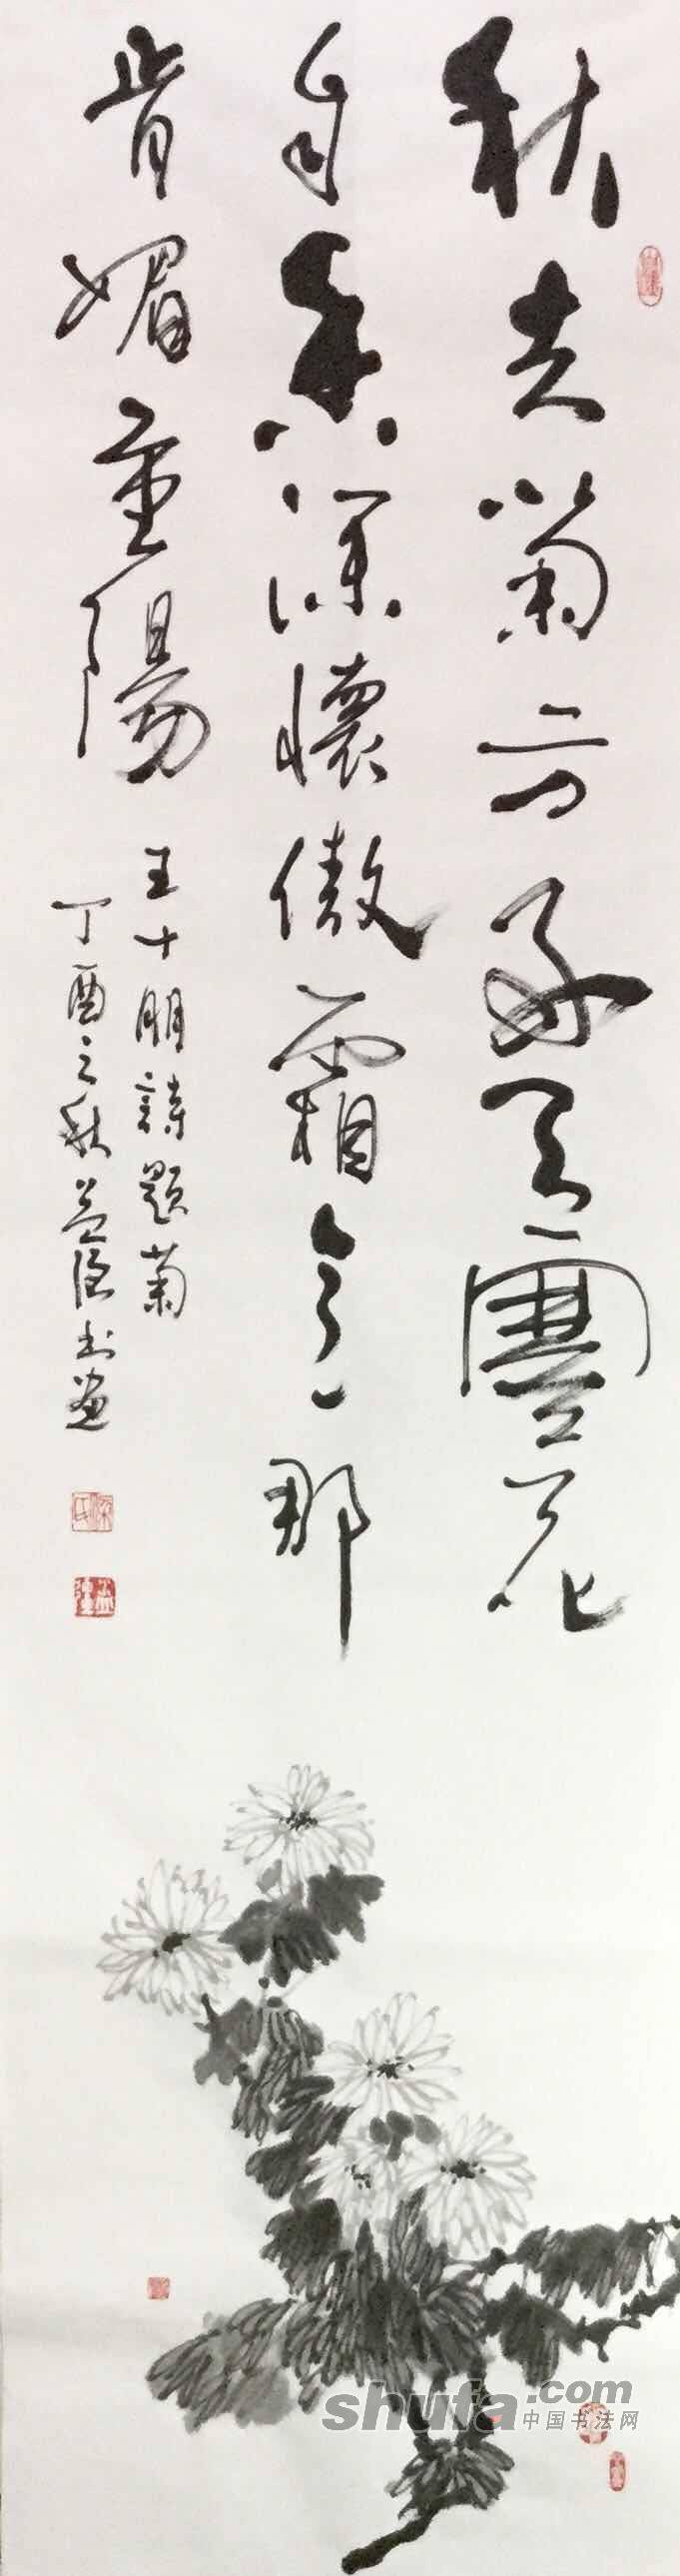 秋去菊方好天寒花
自香深懷傲霜意那
肯媚重陽
王十朋詩題菊
丁酉之秋 書畫
shufa.com
中国书法网